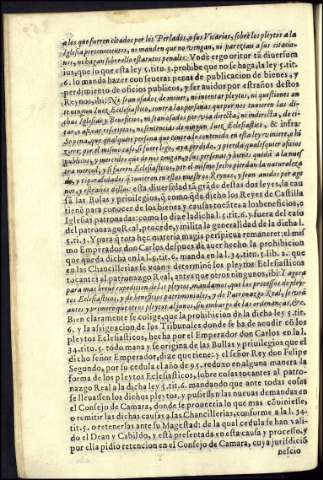 a los que fueren citados por los Perlados, o sus Vicarios, sobre los pleytos a la
Iglesia pertenecientes, ni manden que no vengan, ni parezcan a sus citacio-
nes, ni hagan sobre ello estatutos penales. Vnde ergo oritur tã diuersum
ius, que lo que esta ley 5. tit. 3. prohibe que no se haga, la ley 5. tit.
6. lo mande hazer con seueras penas de publicacion de bienes, y
perdimiento de oficios publicos, y ser auidos por estraños destos
Reynos, ibi: No sean osados de mouer, ni intentar pleytos, ni questiones an
te ningun Iuez, Ecclesiastico, contra las personas que por nos tuuieren las di-
chas Iglesias y Beneficios, ni para esso por via directa, ni indirecta, de ci-
tar, o aduocar, rescriptos, ni sentencias de ningun Iuez, Ecclesiastico, & infra:
So pena, que qualquier persona que contra lo contenido en esta ley viniere, o hi
ziere, por el mismo caso, si fuere lego, aya perdido, y pierda qualesquier oficios
publicos, y mercedes que de nos tengan, a sus personas y bienes queda a la nues
tra merced, y si fueren Ecclesiasticos, por el mismo hecho pierdan la naturaleza
y temporalidades q̃ tuuieren en estos nuestros Reynos, y sean auidos por age
nos, y estraños dellos: esta diuersidad tã grãde destas dos leyes, la cau
sã las Bulas y priuilegios, q̃ como q̃da dicho los Reyes de Castilla
tienẽ para conocer de los bienes y causas tocãtes a los beneficios, o
Iglesias patronadas: como lo dize la dicha l. 5. tit. 6. y fuera del caso
del patronazgo Real, procede, y milita la generalidad de la dicha l.
5. tit. 3. Y para q̃ tota hęc materia magis perspicua remaneret: el mis
mo Emperador don Carlos despues de auer hecho la prohibicion
que queda dicha en la l. 5. tit. 6. manda en la l. 34. titul. 5. lib. 2. que
en las Chancillerias se vean y determinen los pleytos Ecclesiasticos
tocantes al patronazgo Real, antes que otros ningunos, ibi: Y agora
para mas breue expedicion de los pleytos, mandamos, que los processos de pley-
tos Ecclesiasticos, y de beneficios patrimoniales, y de Patronazgo Real, se vean
antes y primero que otros pleytos algunos, sin embargo de las ordenanças, &c.
Bien claramente se colige, que la prohibicion de la dicha ley 5. tit.
6. y la asignacion de los Tribunales donde se ha de acudir cõ los
pleytos Ecclesiasticos, hecha por el Emperador don Carlos en la l.
34. tito. 5. todo mana y se origina de las Bullas y priuilegios que el
dicho señor Emperador, dize que tiene: y el señor Rey don Felipe
Segundo, por su cedula el año de 95. reduxo en alguna manera la
forma de los pleytos Ecclesiasticos, sobre cosas tocantes al patro-
nazgo Real a la dicha ley 5. tit. 6. mandando que ante todas cosas
se lleuassen los dichos pleytos, y pusiessen las nueuas demandas en
el Consejo de Camara, donde se proueeria lo que mas cõuiniesse,
o remitir las dichas causas a las Chancillerias, conforme a la l. 34.
tit. 5. o retenerlas ante su Magestad: de la qual cedula se han vali-
do el Dean y Cabildo, y està presentada en esta causa y processo, y
por ella pidio retencion en el Consejo de Camara, cuya jurisdició